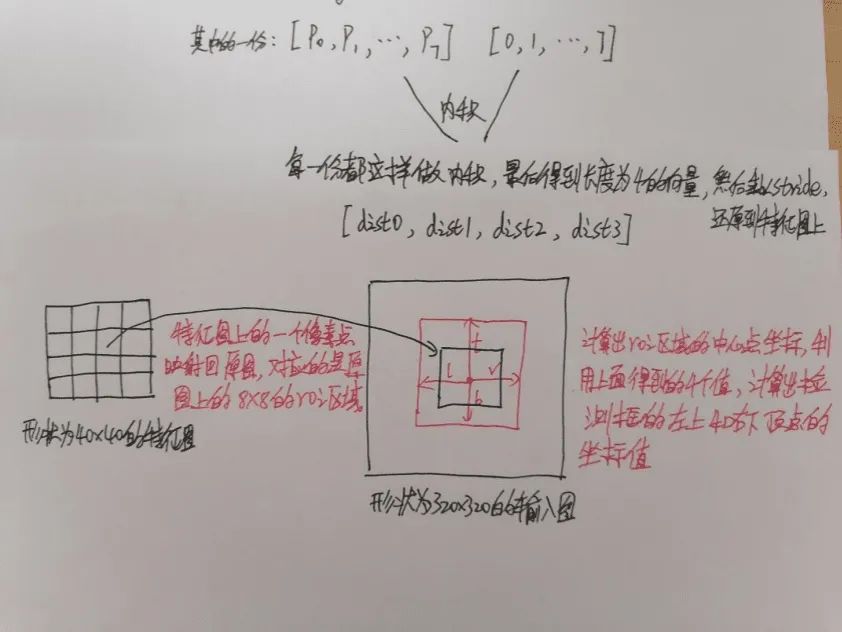 其中的一份: [P₀, P₁, ···, P₇] [0, 1, ···, 7]
内积
每一份都这样做内积, 最后得到长度为4的向量, 然后乘以stride,
还原到特征图上
[dist0, dist1, dist2, dist3]
特征图上的一个像素点
映射回原图, 对应的是原
图上的8×8的roi区域
形状为40×40的特征图
t
l
r
b
形状为320×320的的输入图
计算出roi区域的中心点坐标, 利
用上面得到的4个值, 计算出检
测框的左上和右下顶点的
坐标值